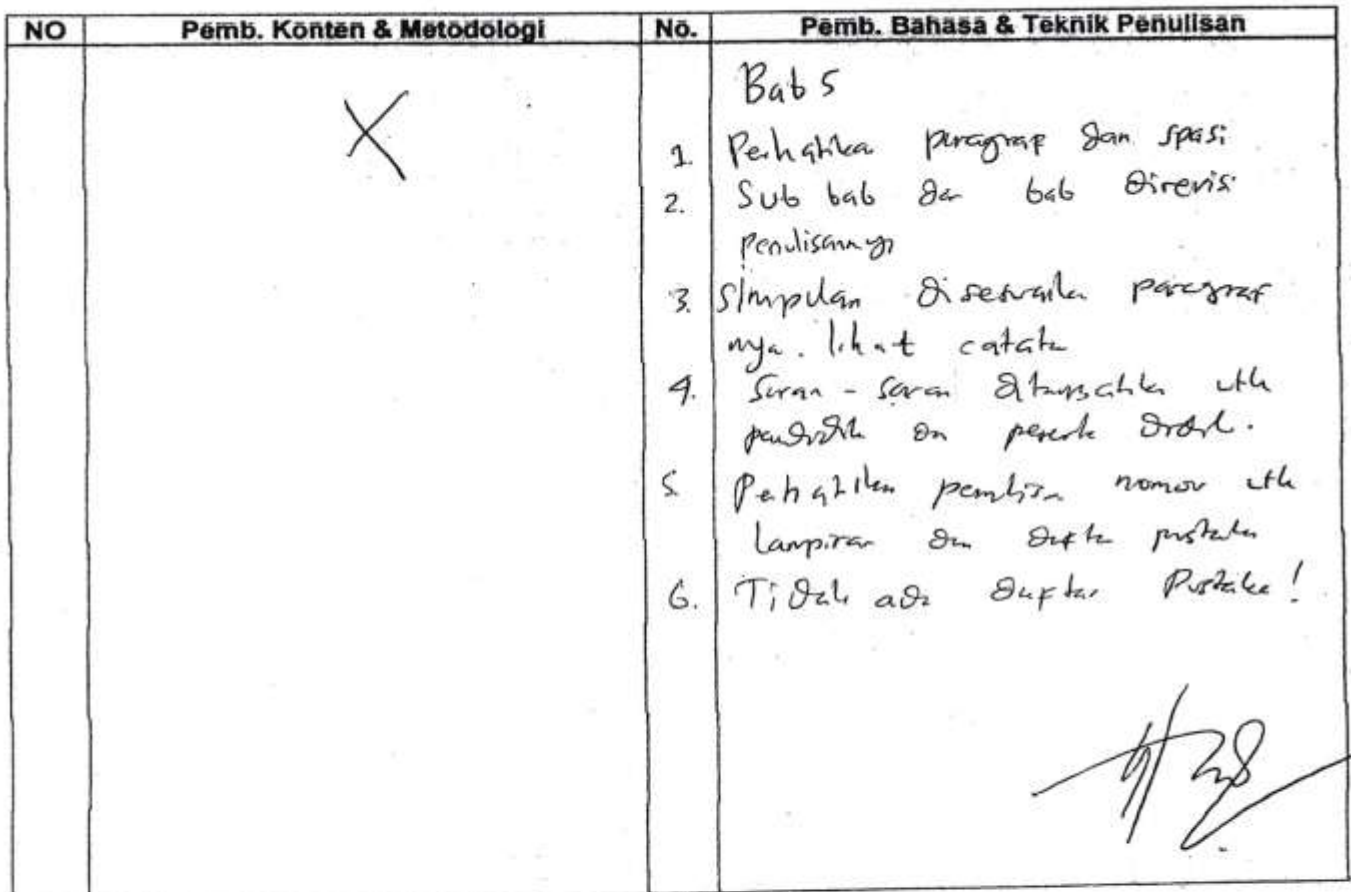 NO Pemb. Konten & Metodologi No. Pemb. Bahasa & Teknik Penulisan
Bab 5
1. Perhatikan paragraf dan spasi
2. Sub bab dan bab direvisi
penulisannya
3. Simpulan disesuaikan paragraf
nya. lihat catatan
4. Saran - saran ditambahkan utk
pendidik dan peserta didik.
5. Perhatikan penulisan nomor utk
lampiran dan daftar pustaka
6. Tidak ada daftar Pustaka!